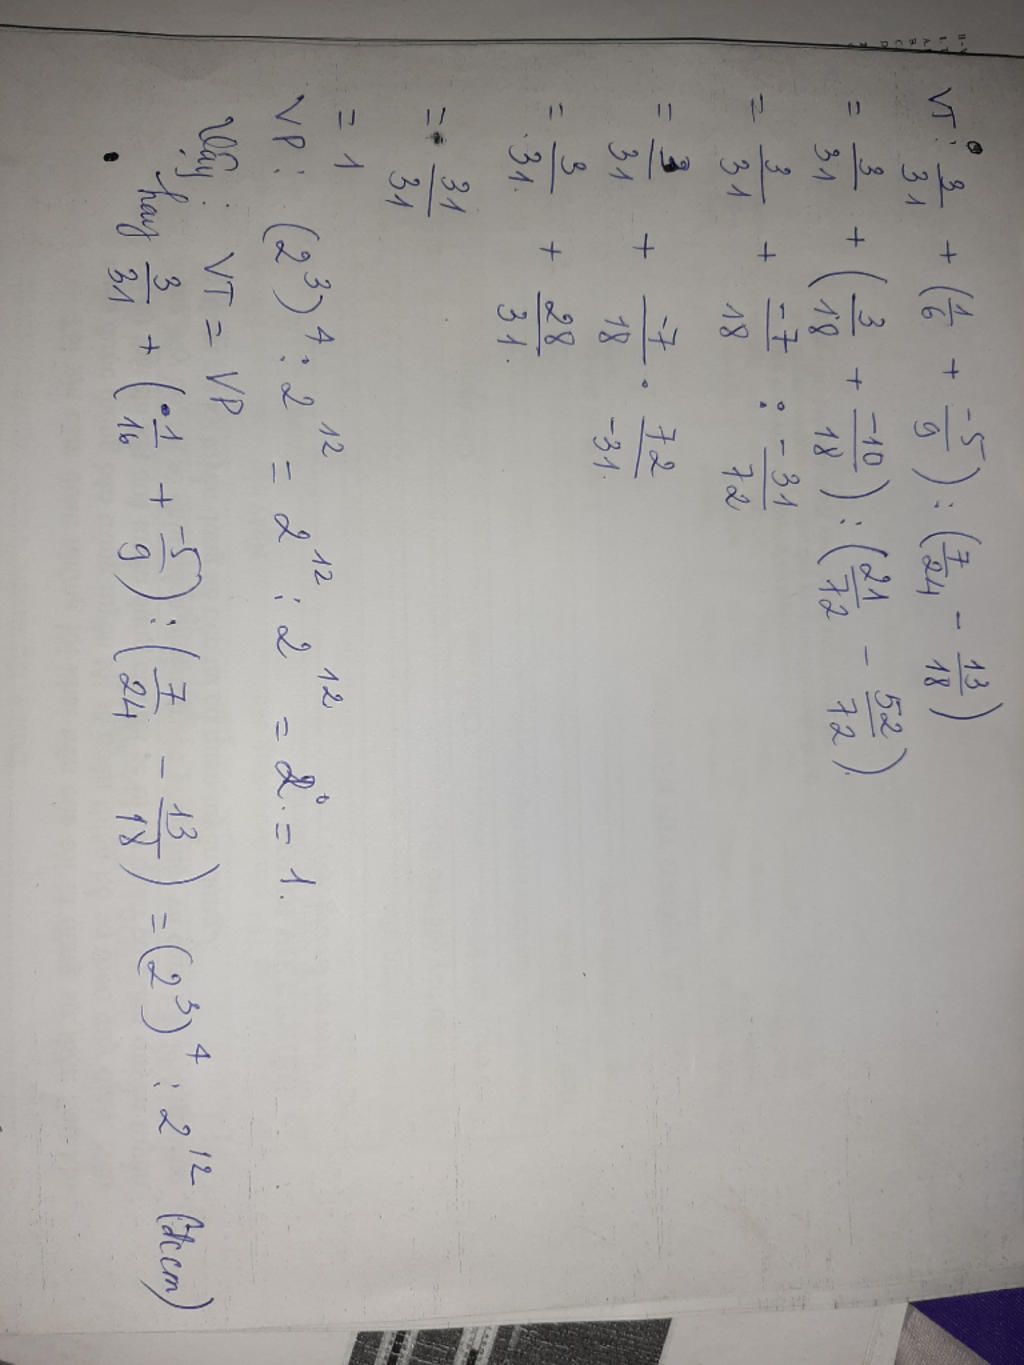 VT: 3/31 + (1/6 + -5/9) : (7/24 - 13/18)
= 3/31 + (3/18 + -10/18) : (21/72 - 52/72)
= 3/31 + -7/18 : -31/72
= 3/31 + -7/18 . 72/-31
= 3/31 + 28/31
= 31/31
= 1
VP: (2³)⁴ : 2¹² = 2¹² : 2¹² = 2⁰ = 1.
Vậy: VT = VP
hay 3/31 + (1/16 + -5/9) : (7/24 - 13/18) = (2³)⁴ : 2¹² (đccm)